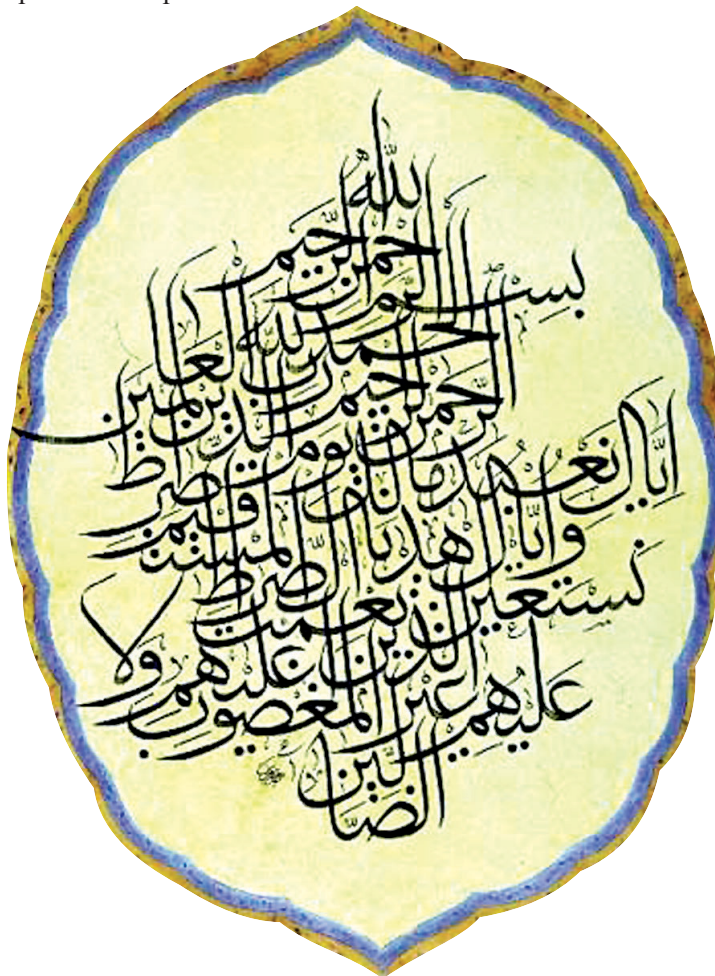 بسم الله الرحمن الرحيم
الحمد لله رب العالمين
الرحمن الرحيم
مالك يوم الدين
اياك نعبد
واياك نستعين
اهدنا الصراط المستقيم
صراط الذين انعمت عليهم
غير المغضوب عليهم ولا
الضالين